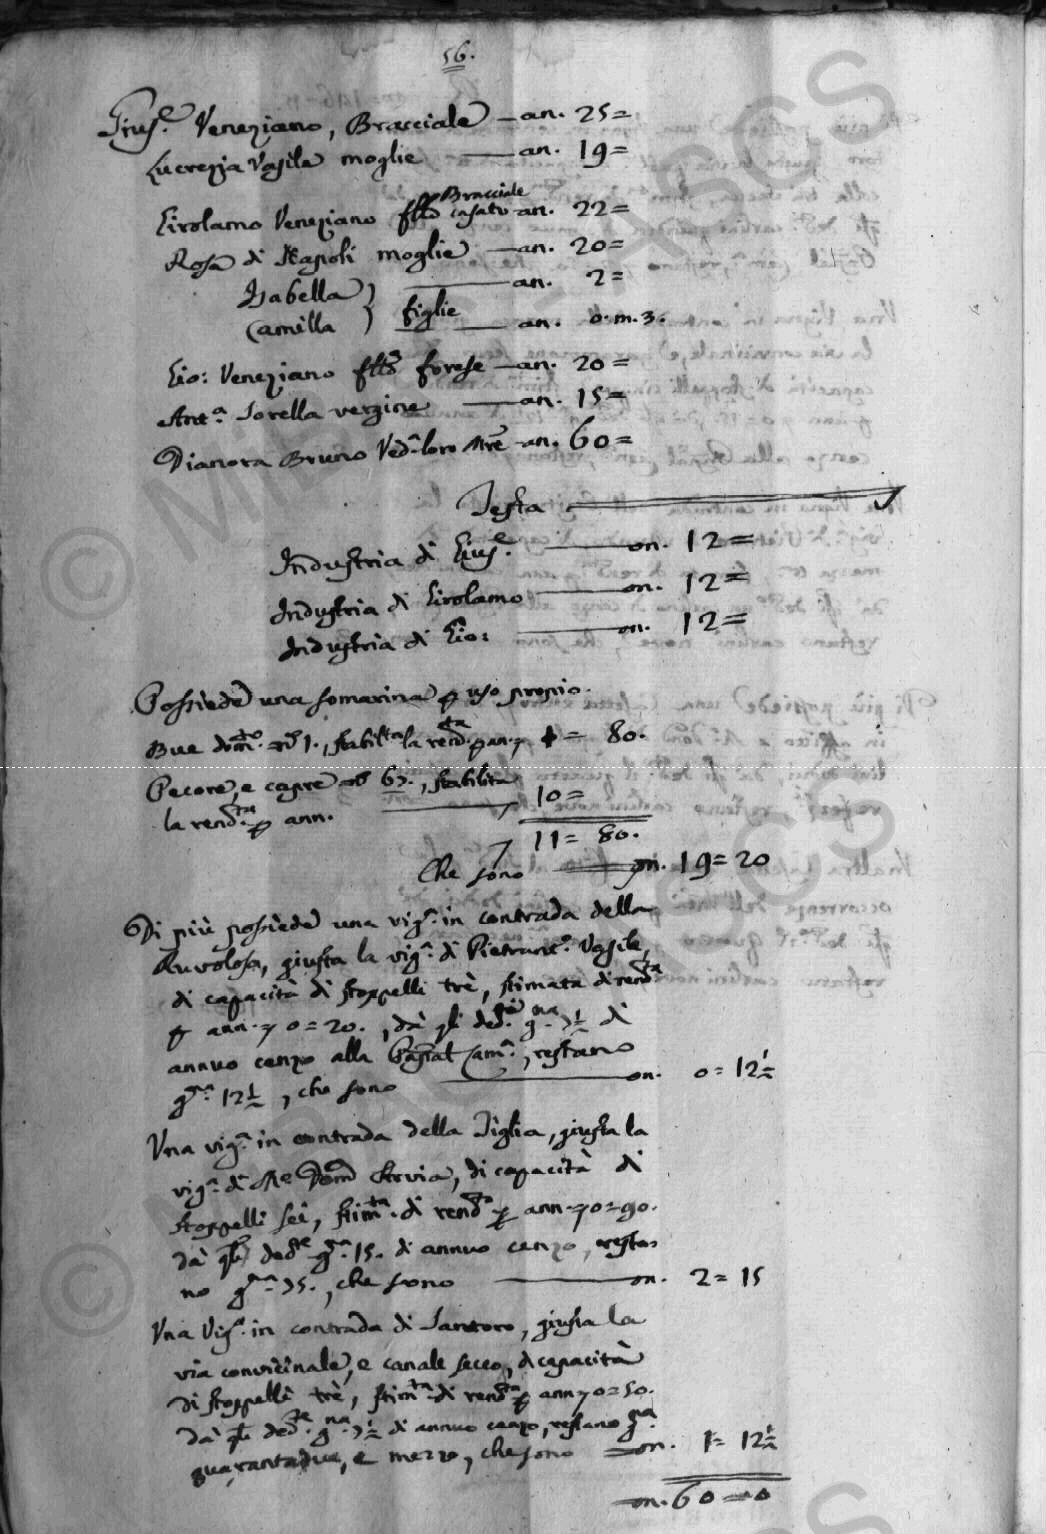 56.
Gius.e Veneziano, Bracciale — an. 25=
Lucrezia Vasile moglie — an. 19=
Girolamo Veneziano fllo Bracciale casato - an. 22=
Rosa di Napoli moglie — an. 20=
Isabella } figlie — an. 2=
Camilla } — an. 0. m. 3.
Gio: Veneziano fllo forese — an. 20=
Ant.a sorella vergine — an. 15=
Dianora Bruno Ved.a loro Mre - an. 60=
Testa
Industria di Gius.e — on. 12=
Industria di Girolamo — on. 12=
Industria di Gio: — on. 12=
Possiede una somarina p uso proprio.
Bue dom.to n.o 1., stabil.ta la rend.ta p an. 1 = 80.
Pecore, e capre n.o 67., stabilita
la rend.ta p ann. — 10=
11= 80.
Che sono — on. 19=20
Di più possiede una vig.a in contrada della
Ruvolosa, giusta la vig.a di Pietrant.o Vasile,
di capacità di stoppelli trè, stimata di rend.ta
p ann. 0=20., dà gli ded. g.na 7½ di
annuo cenzo alla Cam.a, restano
g.na 12½, che sono — on. 0=12½
Una vig.a in contrada della Tiglia, giusta la
vig.a di Servia, di capacità di
stoppelli sei, stim.ta di rend.ta p ann. 0=90.
dà q.li ded.te g.na 15. di annuo cenzo, resta=
no g.na 75., che sono — on. 2=15
Una Vig.a in contrada di Santoro, giusta la
via convicinale, e canale secco, di capacità
di stoppelli trè, stim.ta di rend.ta p ann. 0=50.
dà q.li ded.te g.na 7½ di annuo cenzo, restano g.na
quarantadue, e mezzo, che sono — on. 1=12½
on. 60=0
© MiBAC - ASCS
© MiBAC - ASCS